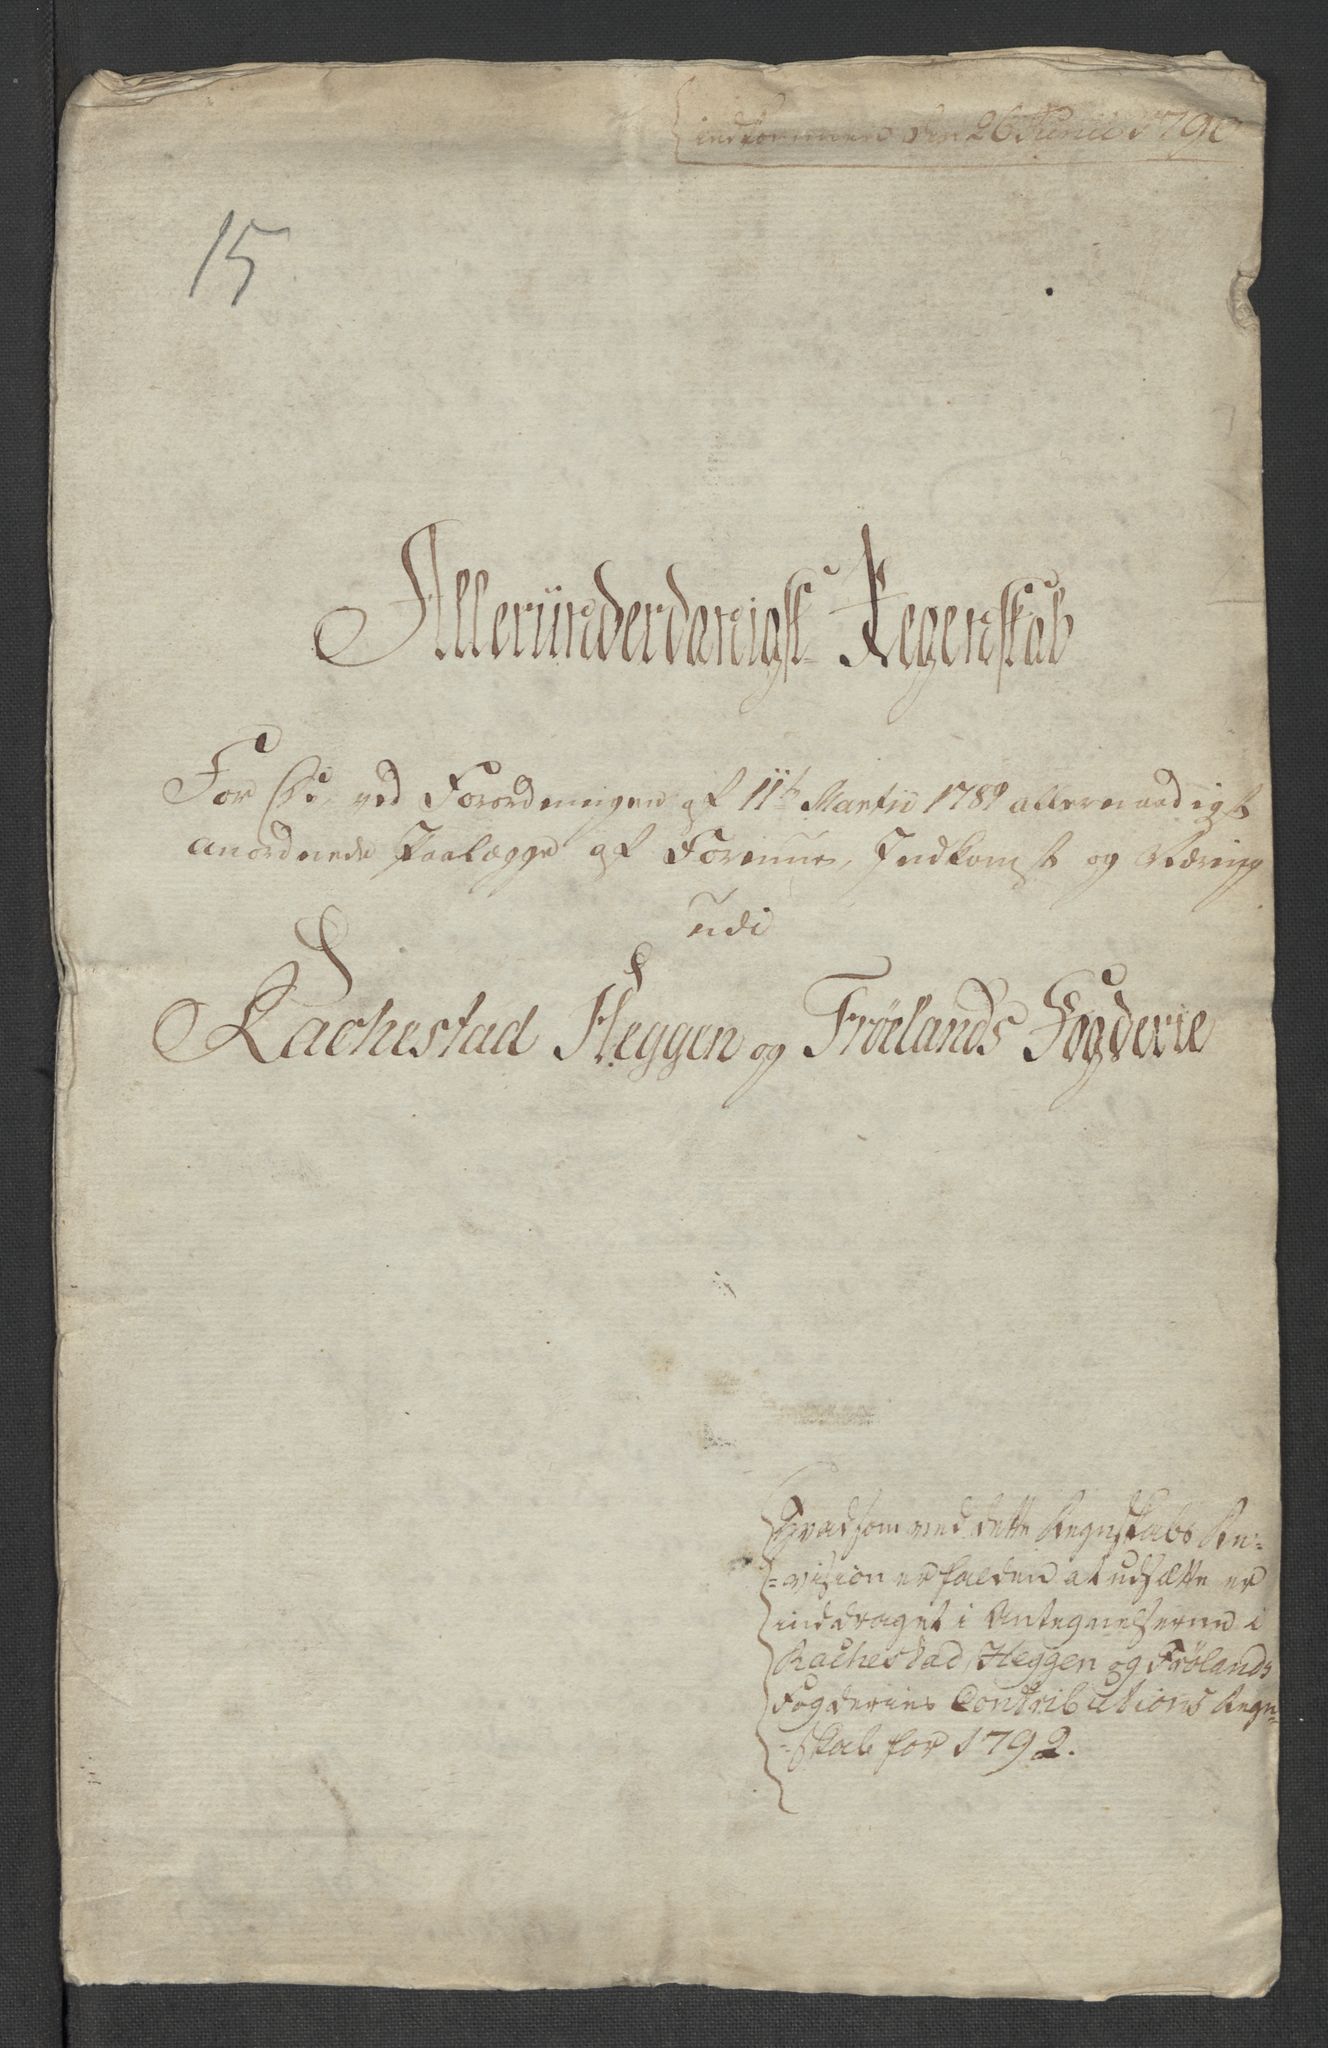 indkommen den 26 Junii 1790
15
Alleründerdanigst Regenskab
For De, ved Forordningen af 11te Martii 1789 allernaadigst
anordnede Paalægge af Formue, Indkomst og Næring
udi
Rachestad Heggen og Frölands Fogderie
Hvad som ved dette Regnskabs Re=
=vision er falden at udsætte er
inddraget i Antegnelserne i
Rachestad, Heggen og Frölands
Fogderies Contributions Regn=
=skab for 1792.